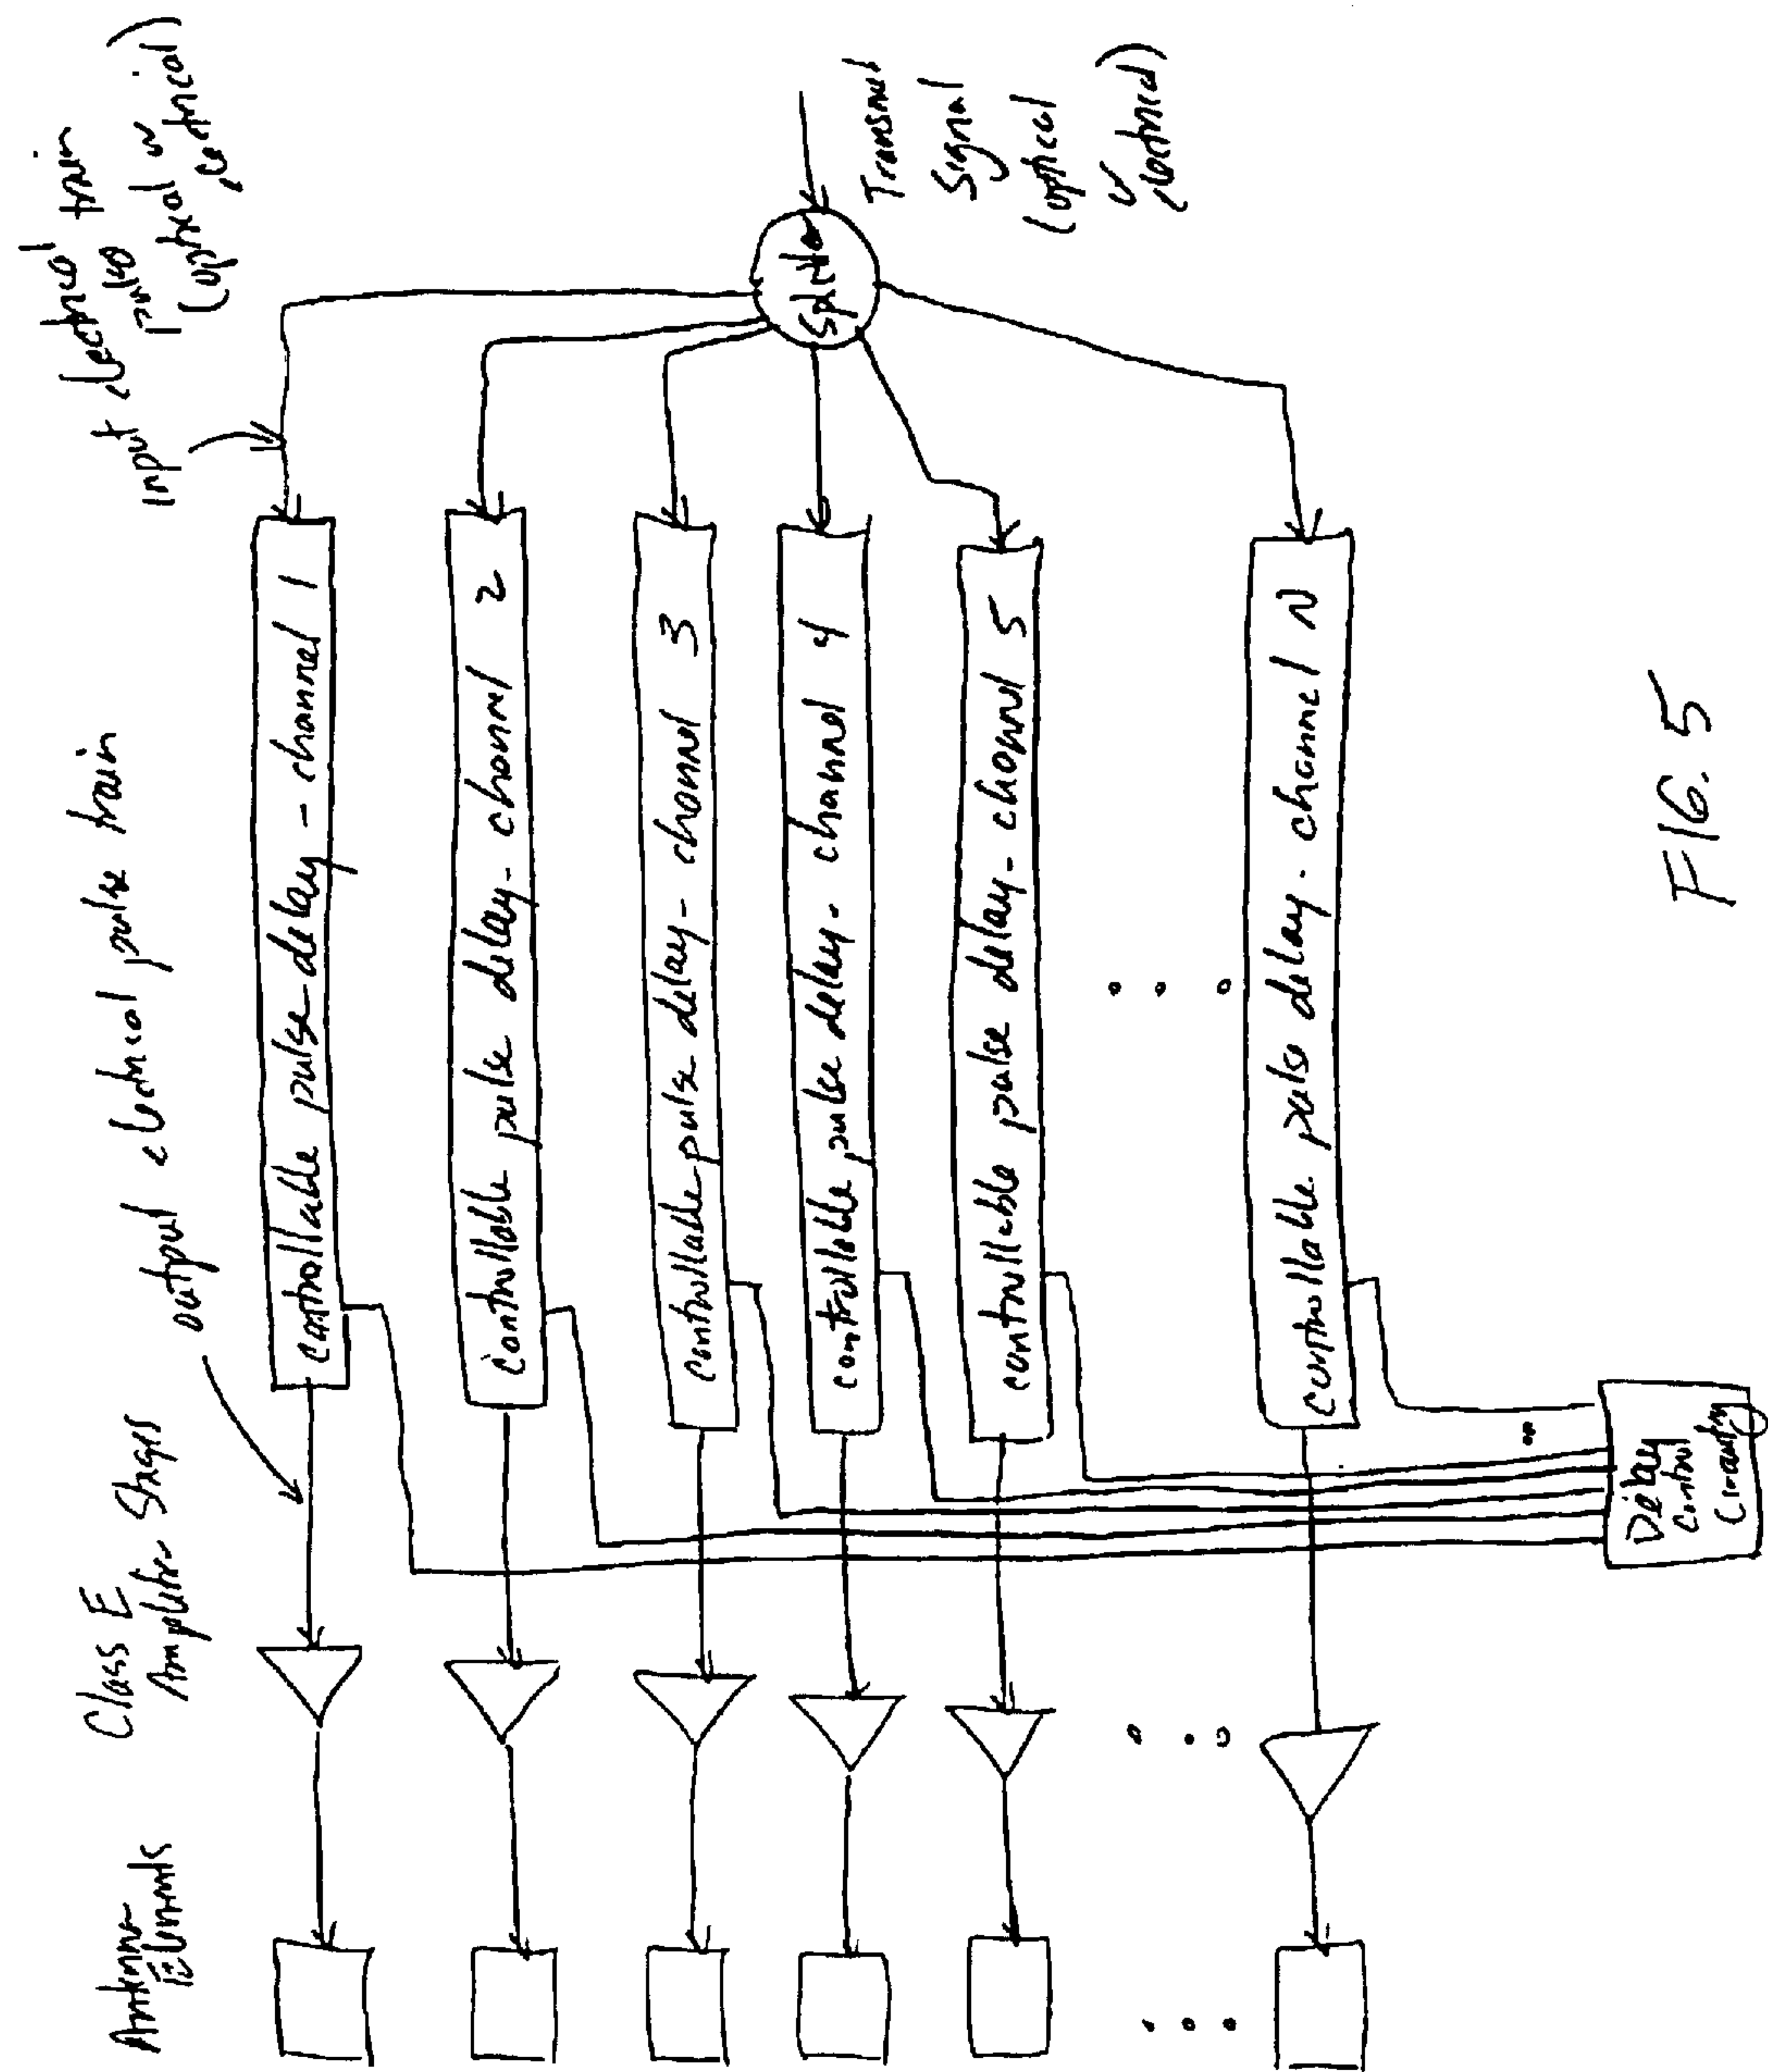 Antenna
Elements
Class E
Amplifier Stages
output electrical pulse train
input electrical train
pulse
(optical or
electrical)
controllable pulse delay - channel 1
controllable pulse delay - channel 2
controllable pulse delay - channel 3
controllable pulse delay - channel 4
controllable pulse delay - channel 5
controllable pulse delay - channel N
Splitter
Transmit
Signal
(optical
or
electrical)
Delay
Control
Circuitry
FIG. 5